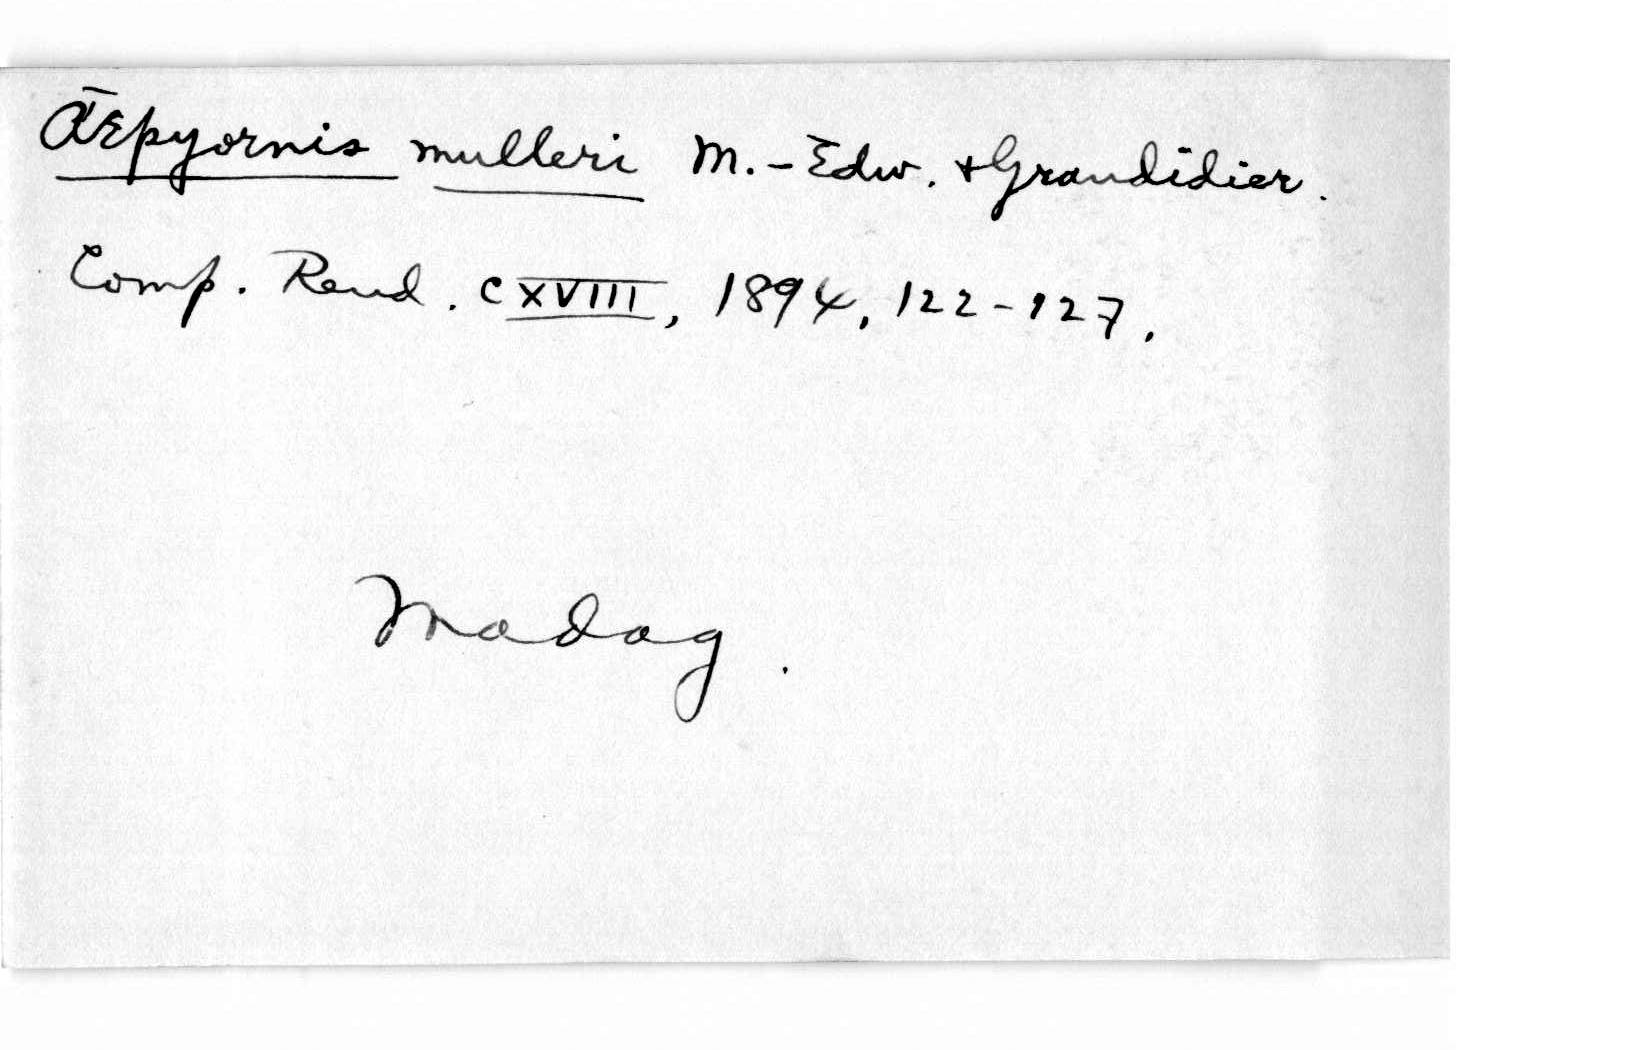 Æpyornis mulleri M.-Edw. & Grandidier.
Comp. Rend. CXVIII, 1894, 122-127.
Madag.